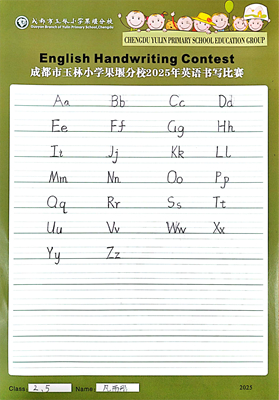 成都市玉林小学果堰分校
CHENGDU YULIN PRIMARY SCHOOL EDUCATION GROUP
English Handwriting Contest
成都市玉林小学果堰分校2025年英语书写比赛
Aa Bb Cc Dd
Ee Ff Gg Hh
It Jj Kk Ll
Mm Nn Oo Pp
Qq Rr Ss Tt
Uu Vv Ww Xx
Yy Zz
Class: 2.5 Name: 2025